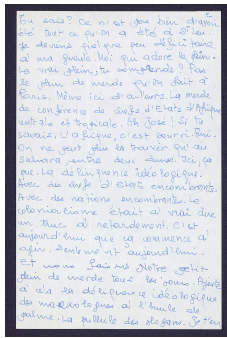 Tu sais? Ce n'est pas bien d'avoir
été tout ce qu'on a été à Dieu
Je deviens presque peu déficitaire
à ma gueule. Moi qui adore le plein.
Le vrai plein, tu comprends? Pas
le plein de merde qu'on fait à
Paris. Même ici et ailleurs. La merde
de conférence de chefs d'Etats d'Afrique
centrale et tropicale. Ah José! Si tu
savais. L'Afrique, c'est pourri-fini.
On ne peut plus la trouver qu'au
Sahara, entre deux dunes. Ici, ça
pue. La délinquance idéologique.
Avec des chefs d'Etats encombrants.
Avec des nations encombrantes. Le
colonialisme était à vrai dire
un truc à retardement. C'est
aujourd'hui que ça commence à
agir. Seulement aujourd'hui.
Et nous faisons notre petit
plein de merde tous les jours. Ajoute
à cela la délinquance idéologique
des marxologues à l'huile de
palme. La pullule des slogans. Je t'en